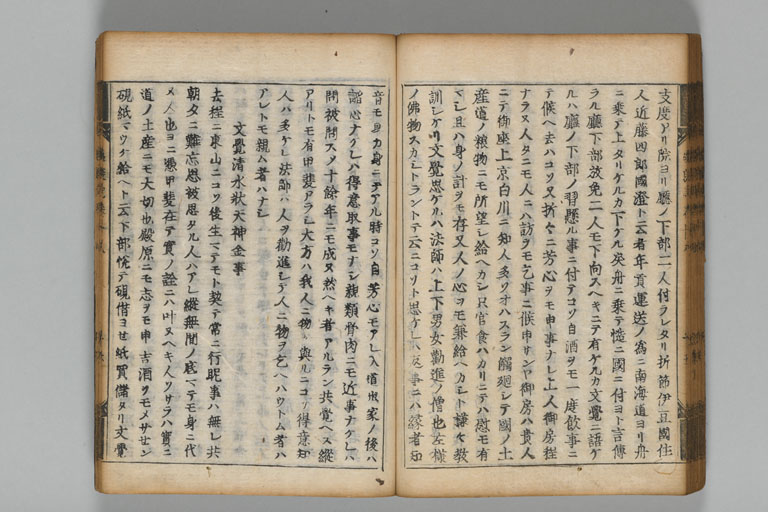 支度アリ院ヨリ廳ノ下部二人付ラレタリ折節伊豆國住
人近藤四郎國澄ト云者年貢運送ノ為ニ南海道ヨリ舟
ニ乗テ上タリケルカ下ケル戻舟ニ乗テ慥ニ國ニ付ヨト言傳
ラル廳下部放免二人モ下向スヘキニテ有ケルカ文覺ニ語ケ
ルハ廳ノ下部ノ習懸ル事ニ付テコソ自酒ヲモ一度飲事ニ
テ候ヘ去ハコソ又折々ニ芳心ヲモ申事ナレ上人御房程
ナラヌ人タニモ人ニハ訪ヲモ乞事ニ候申サンヤ御房ハ貴人
ニテ御座上京白川ニ知人多クオハスラン觸廻シテ國ノ土
産道ノ粮物ニモ所望シ給ヘカシ只官食ハカリニテハ慰モ有
マシ且ハ身ノ計ヲモ存又人ノ心ヲモ兼給ヘカシト讓々教
訓シケリ文覺思ケルハ法師ハ上下男女勸進ノ僧也左様
ノ佛物スカシトラントテ云ニコソト思ケレハ返事ニハ縁者知
音モ且カ身ニテアル時コソ自芳心モアレ入道出家ノ後ハ
諂心ナケレハ得意取事モナシ親類骨肉ニモ近事ナケレハ
問被問スメ十餘年ニモ成ヌ然ヘキ者アルラン共覺ヘス縦
アリトモ有甲斐アラシ大方ハ我人ニ物ヲ與ルニコソ得意知
人ハ多ケレ法師ハ人ヲ勸進シテ人ニ物ヲ乞ヘハウトム者ハ
アレトモ親ム者ハナシ
文覺清水状天神金事
去程ニ東山ニコソ後生マテモト契テ常ニ行昵事ハ無レ共
朝夕ニ難忘思被思タル人ハアレ縦無間ノ底マテモ身ニ代
メ人也ヨニ憑甲斐在テ實ノ詮ニハ叶ヌヘキ人ソサラハ實ニ
道ノ土産ニモ大切也殿原ニモ志ヲモ申吉酒ヲモメサセン
硯紙マウケ給ヘト云下部悦テ硯借ヨセ紙買儲タリ文覺